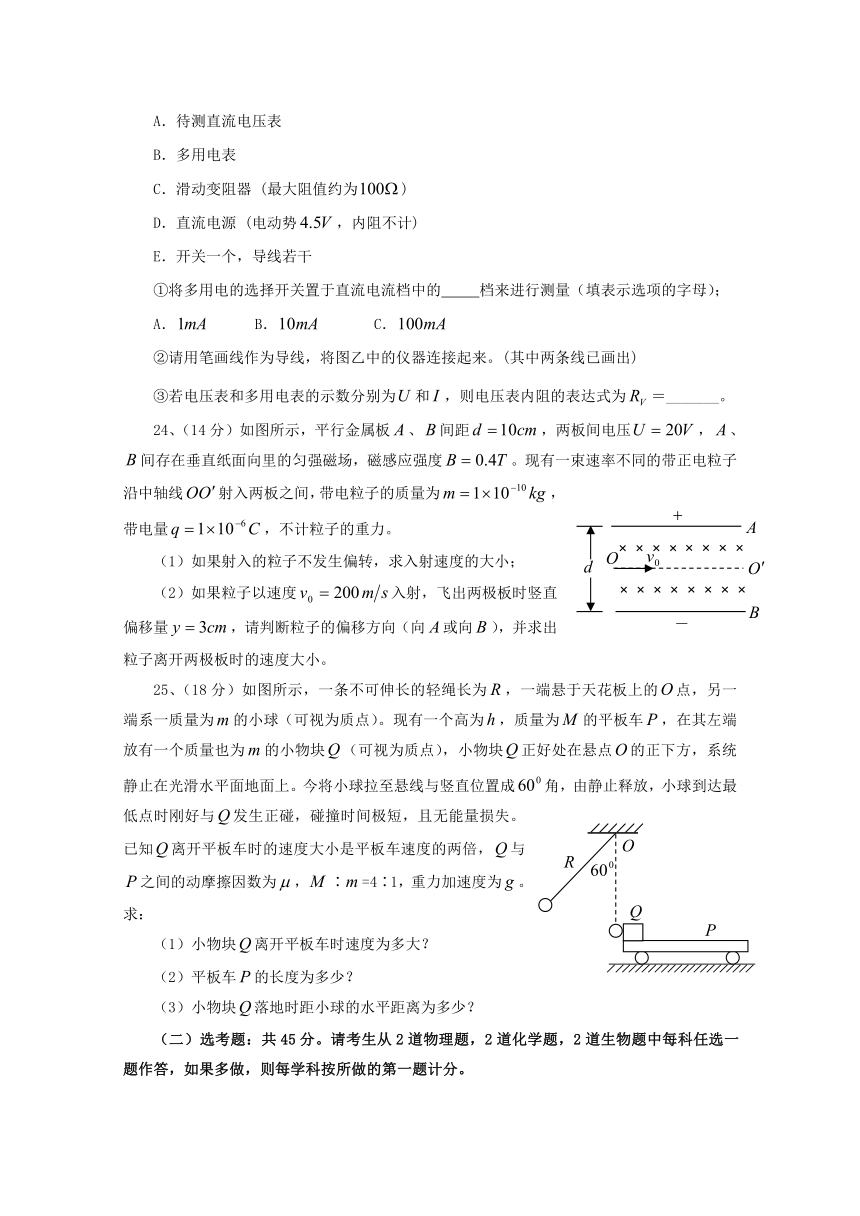 A．待测直流电压表
B．多用电表
C．滑动变阻器 (最大阻值约为100Ω)
D．直流电源 (电动势4.5V，内阻不计)
E．开关一个，导线若干
①将多用电的选择开关置于直流电流档中的_____档来进行测量（填表示选项的字母）；
A．1mA B．10mA C．100mA
②请用笔画线作为导线，将图乙中的仪器连接起来。(其中两条线已画出)
③若电压表和多用电表的示数分别为U和I，则电压表内阻的表达式为R_V＝_______。
24、（14分）如图所示，平行金属板A、B间距d=10cm，两板间电压U=20V，A、
B间存在垂直纸面向里的匀强磁场，磁感应强度B=0.4T。现有一束速率不同的带正电粒子
沿中轴线OO′射入两板之间，带电粒子的质量为m=1×10⁻¹⁰kg，
带电量q=1×10⁻⁶C，不计粒子的重力。
（1）如果射入的粒子不发生偏转，求入射速度的大小；
（2）如果粒子以速度v₀=200m/s入射，飞出两极板时竖直
偏移量y=3cm，请判断粒子的偏移方向（向A或向B），并求出
粒子离开两极板时的速度大小。
+
A
× × × × × × × ×
O
v₀
d
O′
× × × × × × × ×
B
－
25、（18分）如图所示，一条不可伸长的轻绳长为R，一端悬于天花板上的O点，另一
端系一质量为m的小球（可视为质点）。现有一个高为h，质量为M的平板车P，在其左端
放有一个质量也为m的小物块Q（可视为质点），小物块Q正好处在悬点O的正下方，系统
静止在光滑水平面地面上。今将小球拉至悬线与竖直位置成60⁰角，由静止释放，小球到达最
低点时刚好与Q发生正碰，碰撞时间极短，且无能量损失。
已知Q离开平板车时的速度大小是平板车速度的两倍，Q与
P之间的动摩擦因数为μ，M∶m=4∶1，重力加速度为g。
求：
（1）小物块Q离开平板车时速度为多大？
（2）平板车P的长度为多少？
（3）小物块Q落地时距小球的水平距离为多少？
O
R
60⁰
Q
P
（二）选考题：共45分。请考生从2道物理题，2道化学题，2道生物题中每科任选一
题作答，如果多做，则每学科按所做的第一题计分。